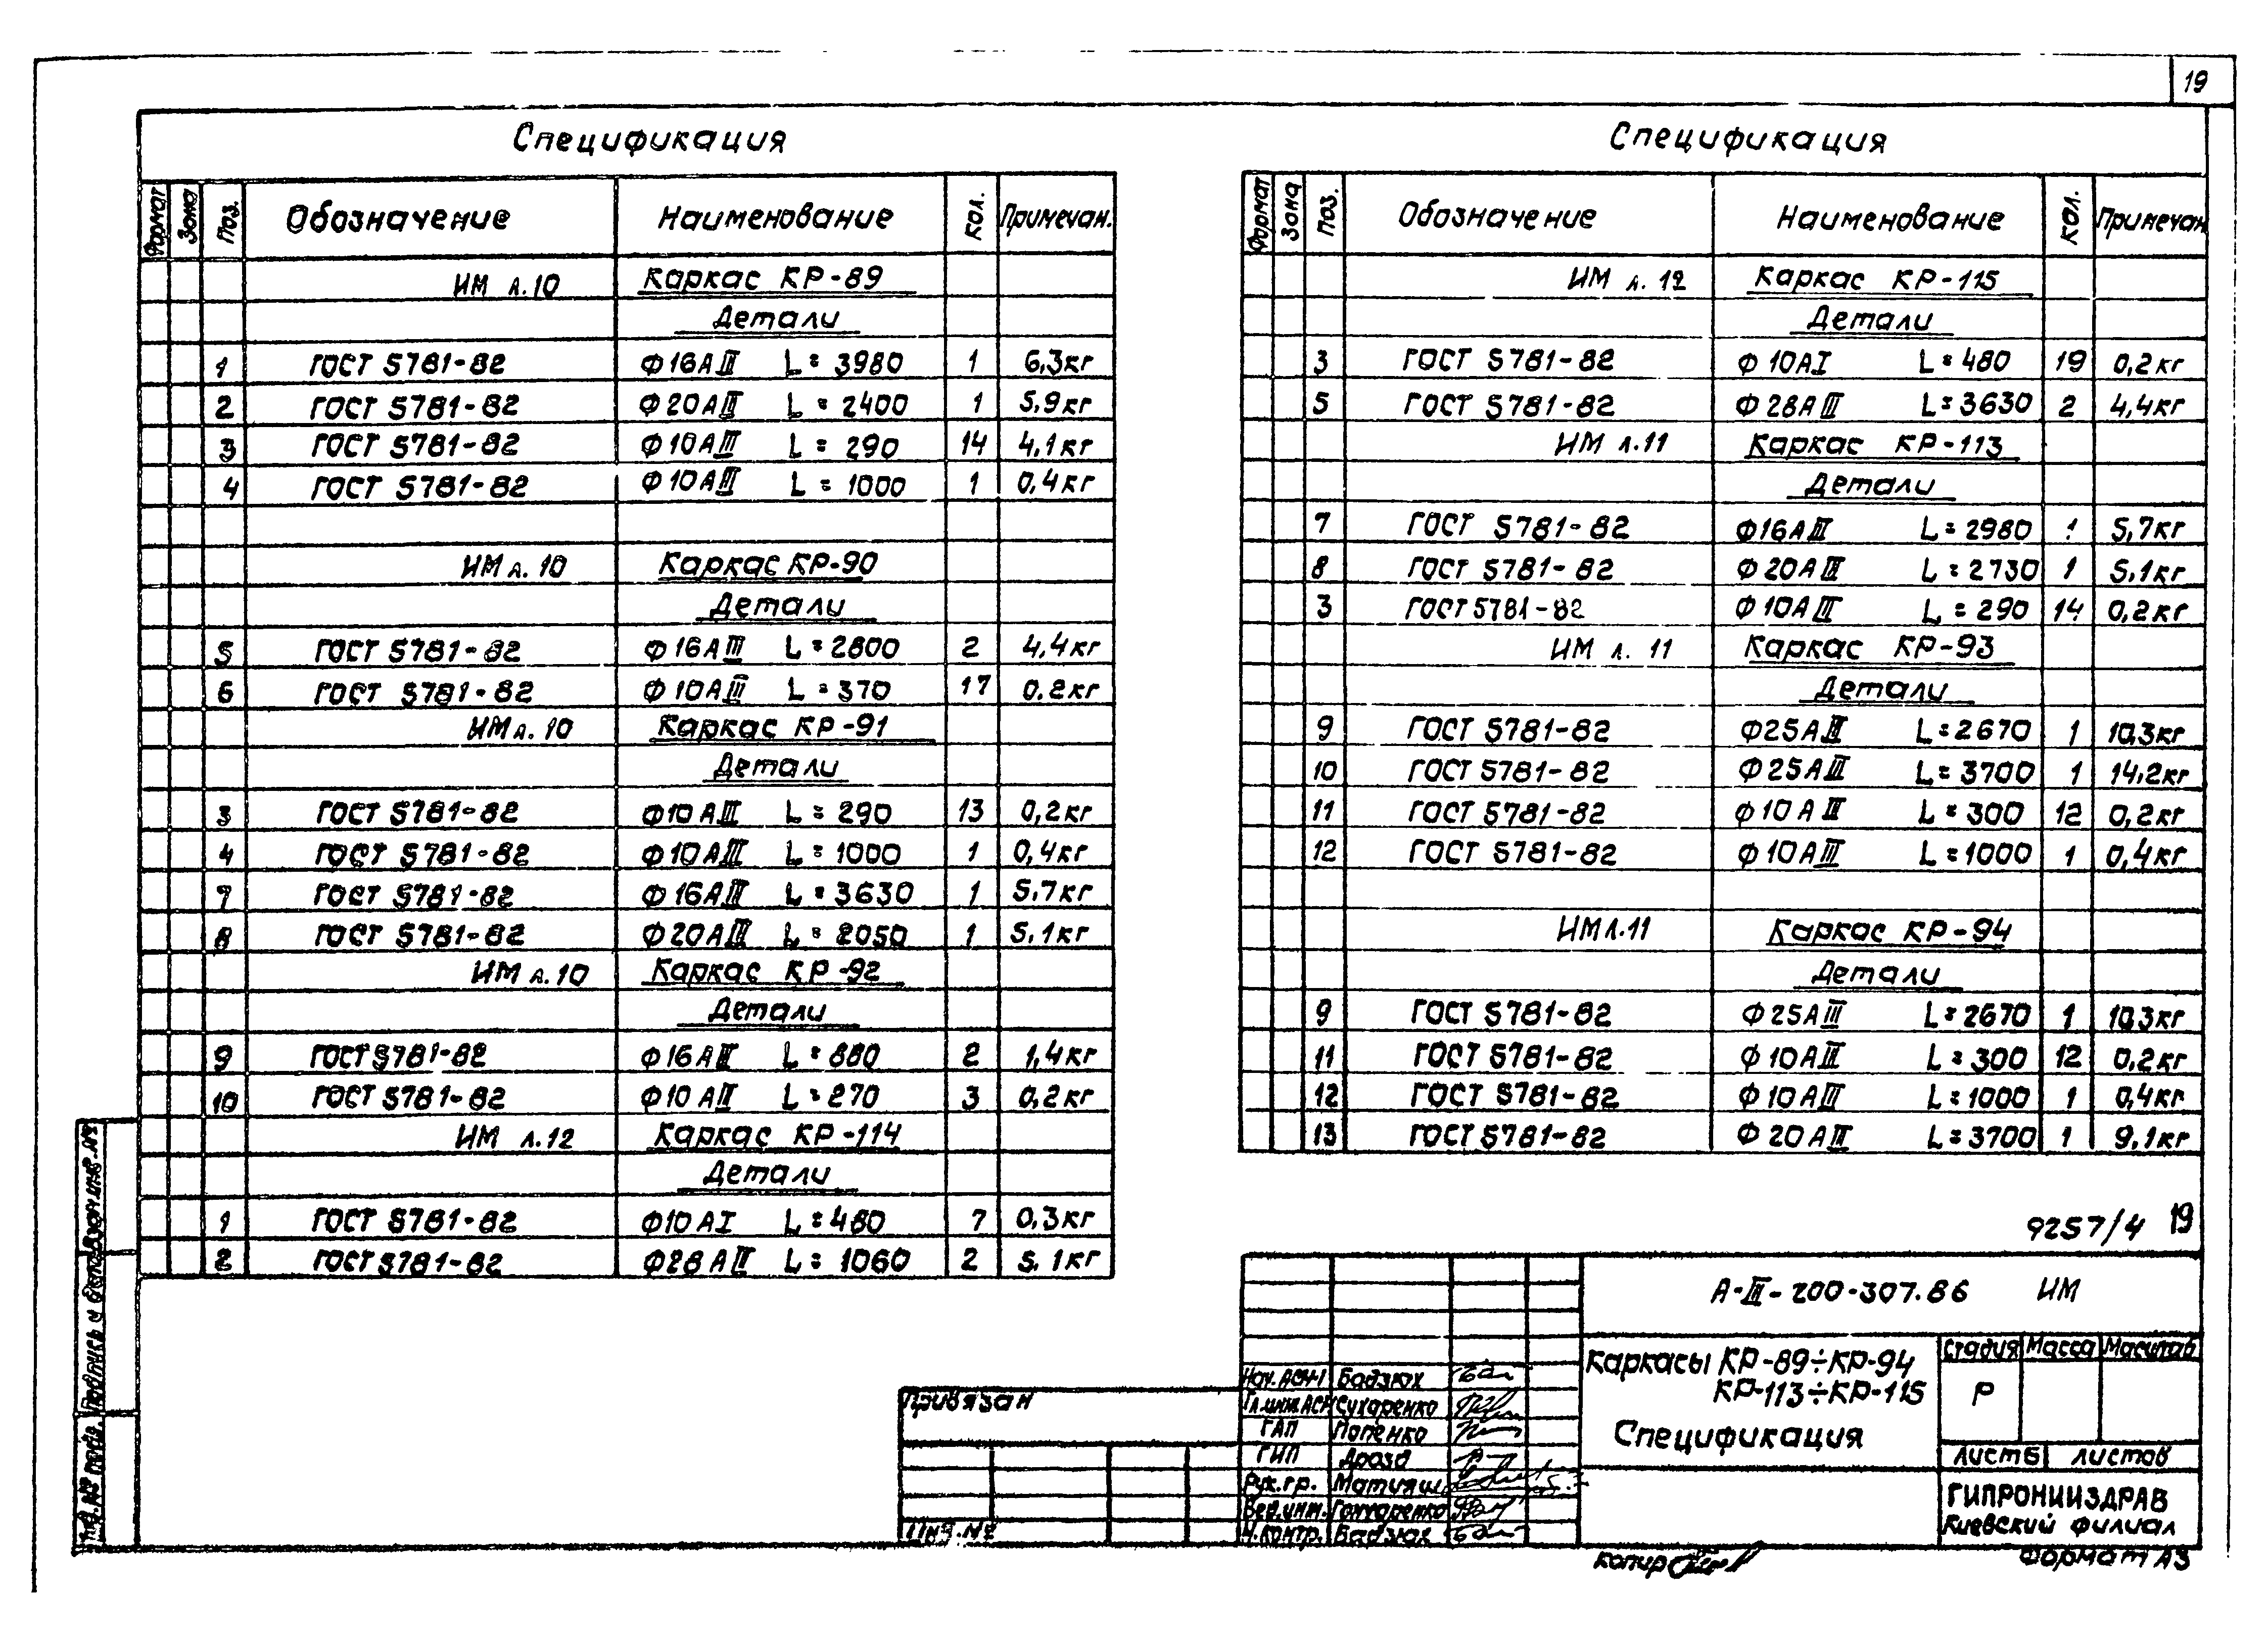 19
Спецификация
Формат Зона Поз. Обозначение Наименование Кол. Примечан.
ИМ л.10 Каркас КР-89
Детали
1 ГОСТ 5781-82 Ф16АIII L=3980 1 6,3кг
2 ГОСТ 5781-82 Ф20АIII L=2400 1 5,9кг
3 ГОСТ 5781-82 Ф10АIII L=290 14 4,1кг
4 ГОСТ 5781-82 Ф10АIII L=1000 1 0,4кг
ИМ л.10 Каркас КР-90
Детали
5 ГОСТ 5781-82 Ф16АIII L=2800 2 4,4кг
6 ГОСТ 5781-82 Ф10АIII L=370 17 0.2кг
ИМ л.10 Каркас КР-91
Детали
3 ГОСТ 5781-82 Ф10АIII L=290 13 0,2кг
4 ГОСТ 5781-82 Ф10АIII L=1000 1 0,4кг
7 ГОСТ 5781-82 Ф16АIII L=3630 1 5.7кг
8 ГОСТ 5781-82 Ф20АIII L=2050 1 5,1кг
ИМ л.10 Каркас КР-92
Детали
9 ГОСТ 5781-82 Ф16АIII L=880 2 1,4кг
10 ГОСТ 5781-82 Ф10АIII L=270 3 0,2кг
ИМ л.12 Каркас КР-114
Детали
1 ГОСТ 5781-82 Ф10АI L=480 7 0,3кг
2 ГОСТ 5781-82 Ф28АIII L=1060 2 5,1кг
Спецификация
Формат Зона Поз. Обозначение Наименование Кол. Примечан.
ИМ л.12 Каркас КР-115
Детали
3 ГОСТ 5781-82 Ф10АI L=480 19 0,2кг
5 ГОСТ 5781-82 Ф28АIII L=3630 2 4,4кг
ИМ л.11 Каркас КР-113
Детали
7 ГОСТ 5781-82 Ф16АIII L=2980 1 5,7кг
8 ГОСТ 5781-82 Ф20АIII L=2730 1 5,1кг
3 ГОСТ 5781-82 Ф10АIII L=290 14 0,2кг
ИМ л.11 Каркас КР-93
Детали
9 ГОСТ 5781-82 Ф25АIII L=2670 1 10,3кг
10 ГОСТ 5781-82 Ф25АIII L=3700 1 14,2кг
11 ГОСТ 5781-82 Ф10АIII L=300 12 0,2кг
12 ГОСТ 5781-82 Ф10АIII L=1000 1 0,4кг
ИМ л.11 Каркас КР-94
Детали
9 ГОСТ 5781-82 Ф25АIII L=2670 1 10,3кг
11 ГОСТ 5781-82 Ф10АIII L=300 12 0,2кг
12 ГОСТ 5781-82 Ф10АIII L=1000 1 0,4кг
13 ГОСТ 5781-82 Ф20АIII L=3700 1 9,1кг
9257/4 19
А-III-200-307.86 ИМ
Каркасы КР-89÷КР-94
КР-113÷КР-115
Спецификация
Стадия Масса Масштаб
Р
Лист 6 листов
ГИПРОНИИЗДРАВ
Киевский филиал
Нач.АСМ-1 Бадзюх
Гл.инж.АСМ Сухаренко
ГАП Попенко
ГИП Дрозд
Рук.гр. Матияш
Вед.инж. Гончаренко
Н.контр. Бадзюх
Привязан
Инв.№
Инв.№ подл. Подпись и дата Взам.инв.№
копир
Формат А3